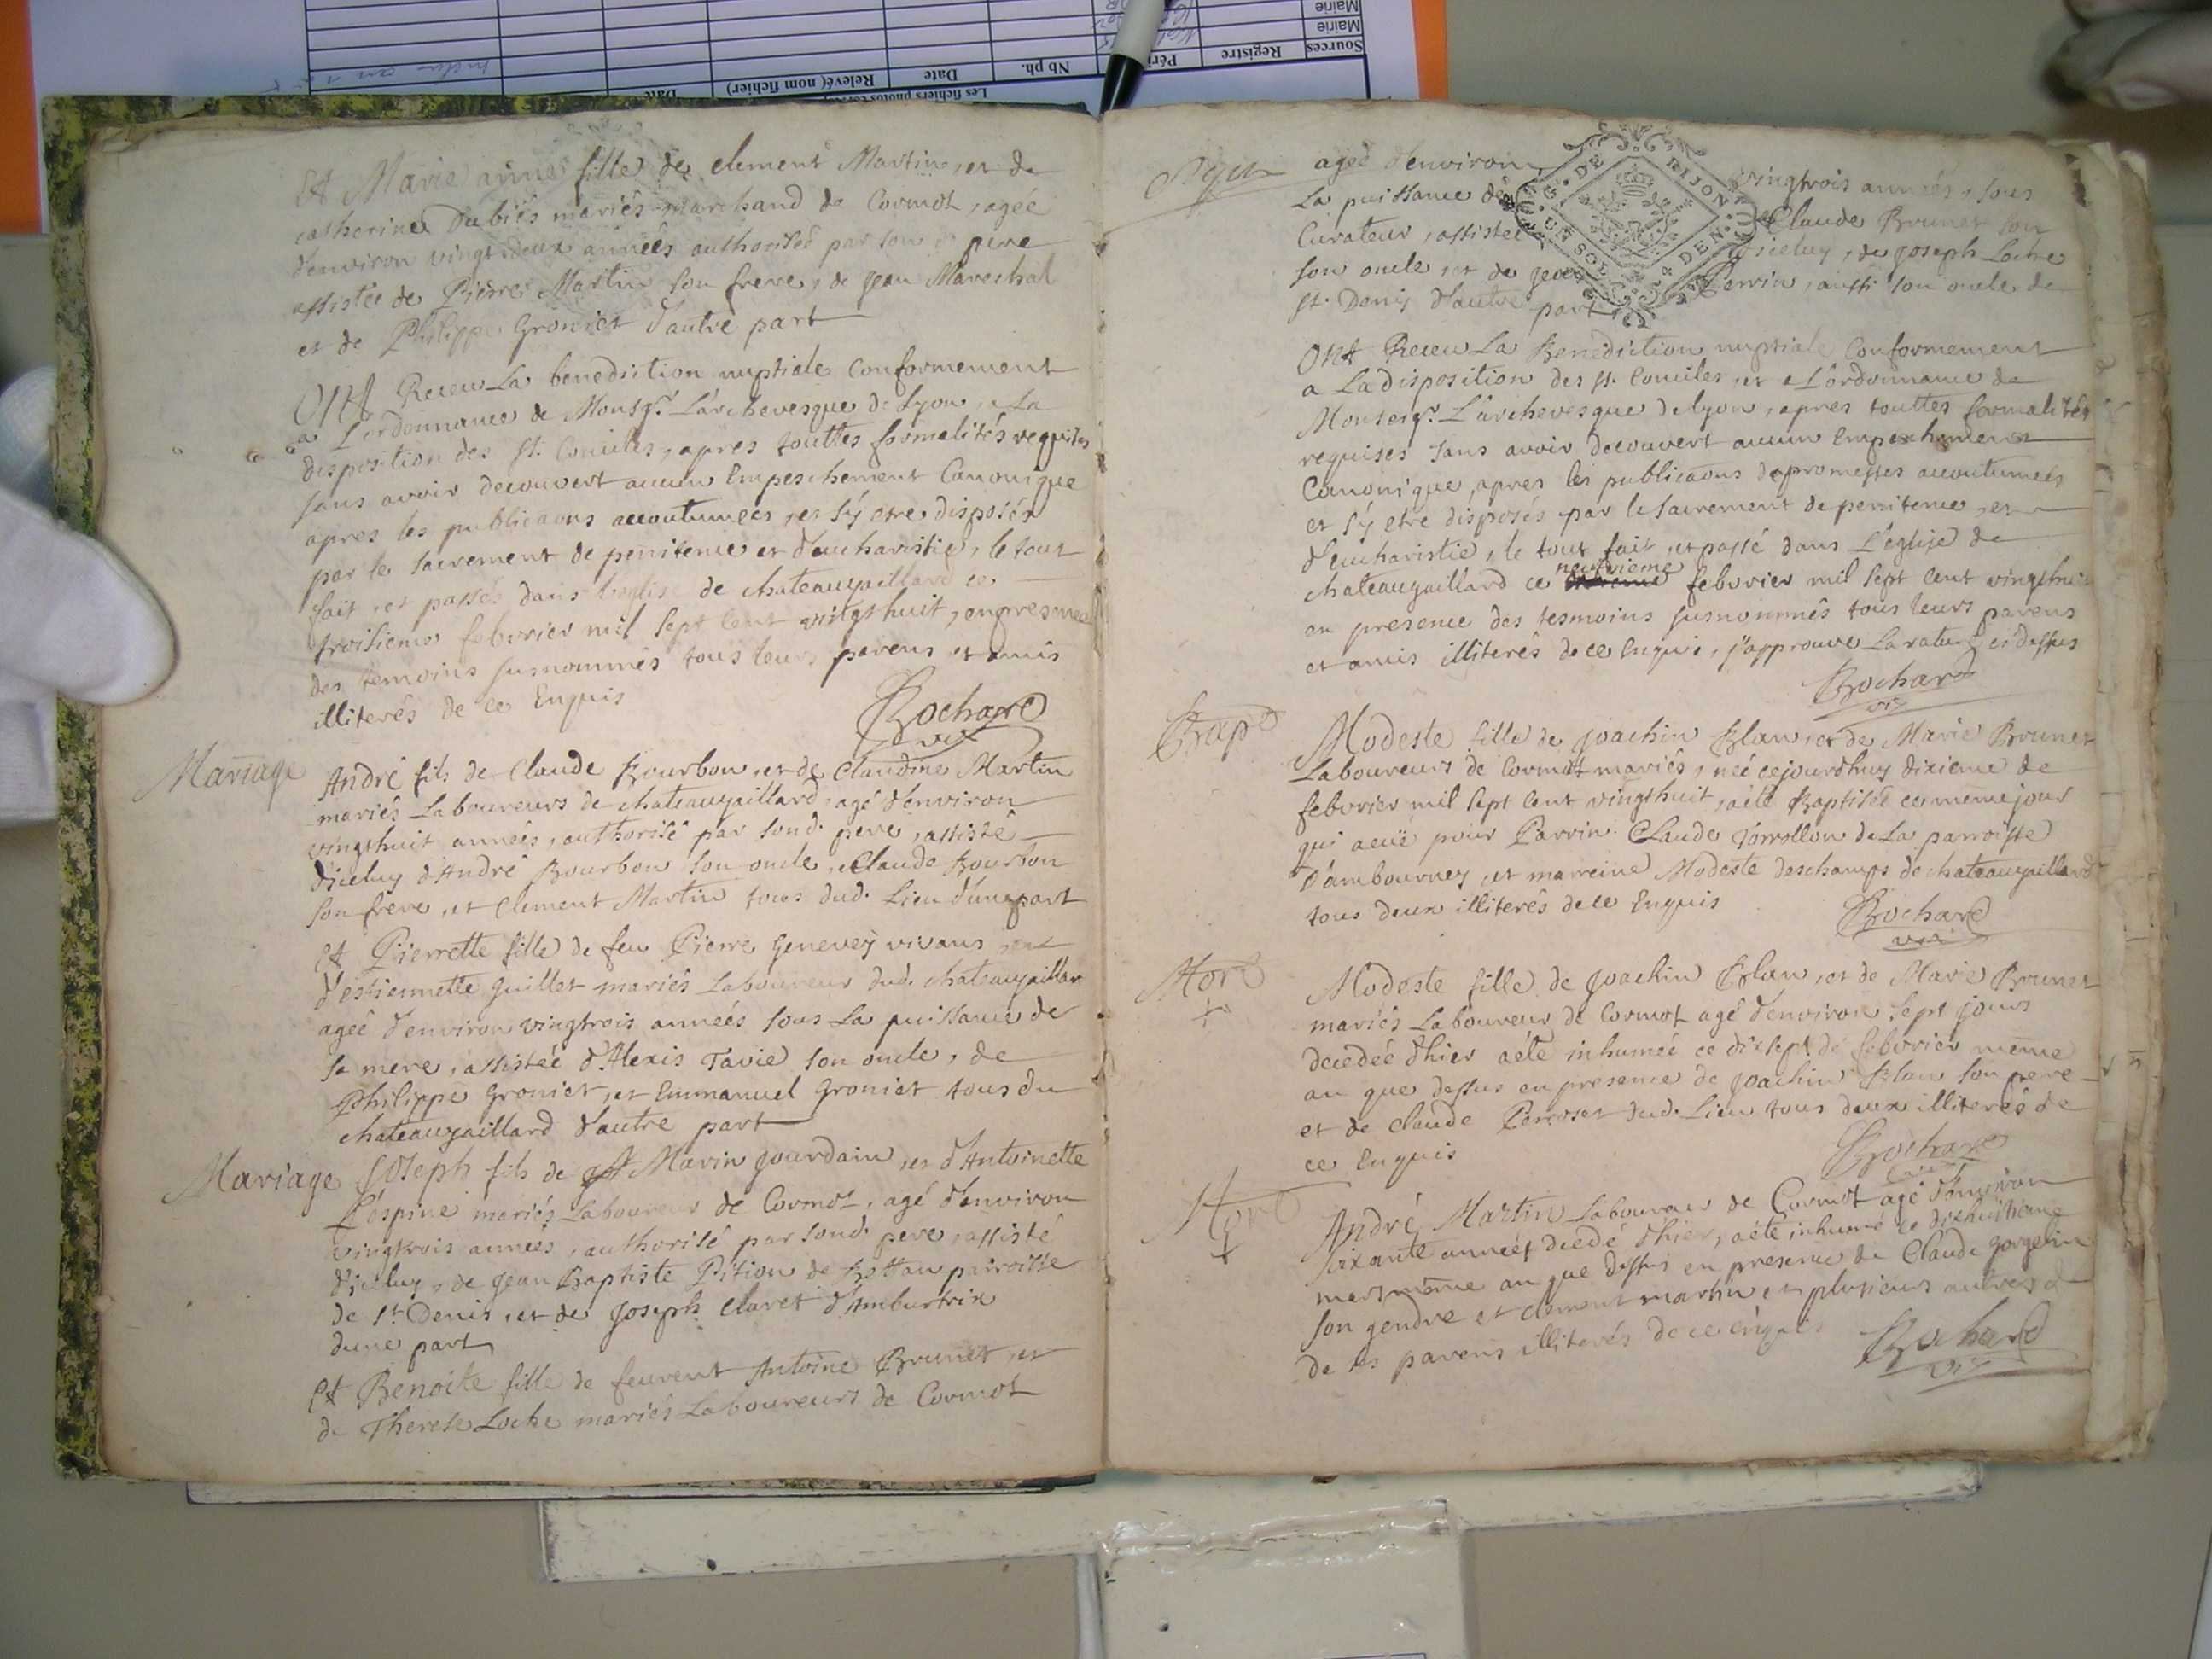 Et Marie anne fille de clement Martin, et de
catherine Dubiés mariés marchand de Cormot, agée
d'environ vingt deux années authorisée par son d. pere
assistée de Pierre Martin son frere, de Jean Mareschal
et de Philippe Groniet d'autre part
Ont Receu La benediction nuptiale Conformement
a L'ordonnance de Monsgr. L'archevesque de Lyon, a La
disposition des st. Conciles, apres touttes formalités requises
sans avoir decouvert aucun Empeschement Canonique
apres les publicaons accoutumees, et s'y etre disposés
par le sacrement de penitence et d'eucharistie, le tout
fait et passés dans l'eglise de chateaugaillard ce
troisieme febvrier mil sept cent vingthuit, en presence
des temoins susnommés tous leurs parens et amis
illiterés de ce Enquis
Rochard
vic
Mariage
André fils de Claude Bourbon, et de Claudine Martin
mariés Laboureurs de chateaugaillard, agé d'environ
vingthuit années, authorisé par sond. pere, assisté
d'icluy d'André Bourbon son oncle, Claude Bourbon
son frere, et Clement Martin tous dud. Lieu d'une part
Et Pierrette fille de feu Pierre Genevey vivans, et
d'estiennette Guillet mariés Laboureur dud. chateaugaillar
ageé d'environ vingtrois années sous La puissance de
sa mere, assistée d'Alexis Tavie son oncle, de
Philippe Groniet, et Emmanuel Groniet tous du
chateaugaillard d'autre part
Mariage
Joseph fils de Marin Jourdain, et d'Antoinette
L'espine mariés Laboureur de Cormot, agé d'environ
vingtrois années, authorisé par sond. pere, assisté
d'icluy, de Jean Baptiste Pition de parroisse
de St. Denis, et de Joseph Claret d'Amburtrix
dune part
Et Benoite fille de feuvent Antoine Brunet, et
de Therese Loche mariés Laboureurs de Cormot
ageé d'environ vingtrois années, sous
La puissance de Claude Brunet son
Curateur, assistée d'iceluy, de Joseph Loche
son oncle, et de Jean Perrin, aussi son oncle de
St. Denis d'autre part
G. DE DIJON
UN SOL 4 DEN.
Ont Receu La Benediction nuptiale Conformement
a La disposition des st. Conciles, et a L'ordonnance de
Monseigr. L'archevesque de lyon, apres touttes formalités
requises sans avoir decouvert aucun Empeschement
Canonique, apres les publicaons de promesses accoutumees
et s'y etre disposés par le sacrement de penitence, et
d'eucharistie, le tout fait, et passé dans L'eglise de
neufvieme
chateaugaillard ce febvrier mil sept cent vingthuit
en presence des tesmoins susnommés tous leurs parens
et amis illiterés de ce Enquis, j'approuve La rature ci dessus
Rochard
vic
Bapt
Modeste fille de Joachin Blan, et de Marie Brunet
Laboureurs de Cormot mariés, neé cejourdhuy dixieme de
febvrier mil sept cent vingthuit, a été Baptisée ce meme jour
qui a eu pour Parrin Claude de La parroisse
d'ambournay, et marreine Modeste deschamps de chateaugaillard
tous deux illiterés de ce Enquis
Rochard
vic
Mort
Modeste fille de Joachin Blan, et de Marie Brunet
mariés Laboureur de Cormot agé d'environ sept jours
decedée d'hier a été inhumée ce dixsept de febvrier meme
an que dessus en presence de Joachin Blan son pere
et de Claude dud. Lieu tous deux illiterés de
ce Enquis
Rochard
vic
Mort
André Martin Laboureur de Cormot agé d'environ
soixante années decedé d'hier, a été inhumé ce dixhuitieme
mars meme an que dessus en presence de Claude Gorgelin
son gendre et clement martin et plusieurs autres d
de ses parens illiterés de ce enquis
Rochard
vic
Sources
Registre
Péri
Nb ph.
Date
Relevé( nom fichier)
Date
Mairie
Mairie